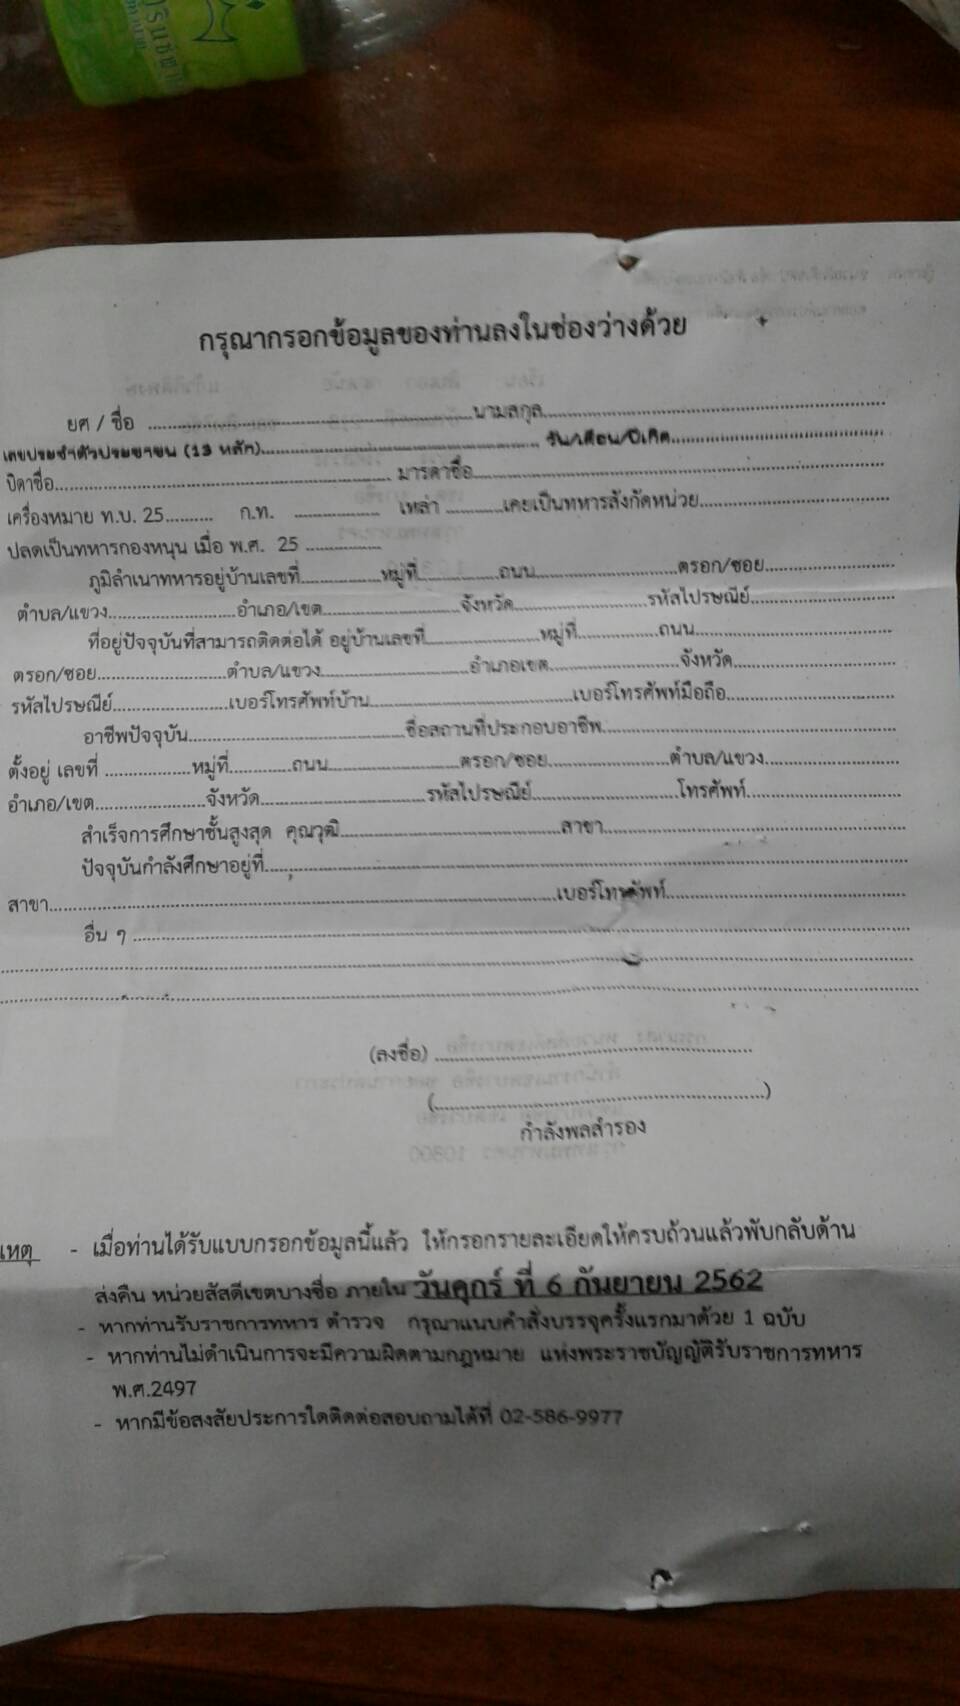 กรุณากรอกข้อมูลของท่านลงในช่องว่างด้วย
ยศ / ชื่อ ........................................นามสกุล........................................
เลขประจำตัวประชาชน (13 หลัก)........................................ วัน/เดือน/ปีเกิด..............................
บิดาชื่อ........................................ มารดาชื่อ........................................
เครื่องหมาย ท.บ. 25.......... ก.ท. ................. เหล่า ............เคยเป็นทหารสังกัดหน่วย..............................
ปลดเป็นทหารกองหนุน เมื่อ พ.ศ. 25 ...............
ภูมิลำเนาทหารอยู่บ้านเลขที่...............หมู่ที่...............ถนน..............................ตรอก/ซอย.........................
ตำบล/แขวง.........................อำเภอ/เขต.........................จังหวัด.........................รหัสไปรษณีย์.........................
ที่อยู่ปัจจุบันที่สามารถติดต่อได้ อยู่บ้านเลขที่.........................หมู่ที่...............ถนน..............................
ตรอก/ซอย.........................ตำบล/แขวง.........................อำเภอเขต.........................จังหวัด.........................
รหัสไปรษณีย์.........................เบอร์โทรศัพท์บ้าน..............................เบอร์โทรศัพท์มือถือ..............................
อาชีพปัจจุบัน........................................ชื่อสถานที่ประกอบอาชีพ........................................
ตั้งอยู่ เลขที่ .................หมู่ที่.............ถนน.........................ตรอก/ซอย.........................ตำบล/แขวง.........................
อำเภอ/เขต.........................จังหวัด..............................รหัสไปรษณีย์.........................โทรศัพท์.........................
สำเร็จการศึกษาชั้นสูงสุด คุณวุฒิ........................................สาขา........................................
ปัจจุบันกำลังศึกษาอยู่ที่............................................................
สาขา............................................................เบอร์โทรศัพท์........................................
อื่น ๆ ............................................................
(ลงชื่อ) ............................................................
(............................................................)
กำลังพลสำรอง
เหตุ - เมื่อท่านได้รับแบบกรอกข้อมูลนี้แล้ว ให้กรอกรายละเอียดให้ครบถ้วนแล้วพับกลับด้าน
ส่งคืน หน่วยสัสดีเขตบางซื่อ ภายใน วันศุกร์ ที่ 6 กันยายน 2562
- หากท่านรับราชการทหาร ตำรวจ กรุณาแนบคำสั่งบรรจุครั้งแรกมาด้วย 1 ฉบับ
- หากท่านไม่ดำเนินการจะมีความผิดตามกฎหมาย แห่งพระราชบัญญัติรับราชการทหาร
พ.ศ.2497
- หากมีข้อสงสัยประการใดติดต่อสอบถามได้ที่ 02-586-9977